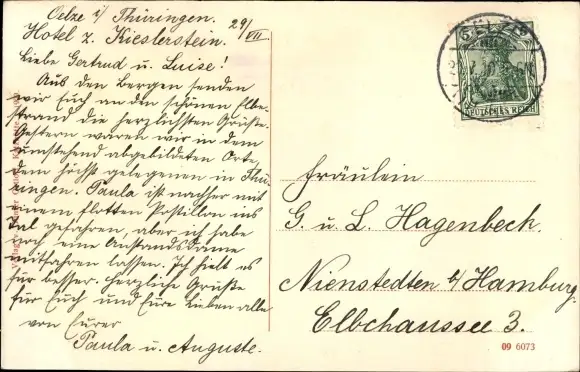 Oelze i/ Thüringen. 29/VII
Hotel z. Kieslerstein.
Liebe Gertrud u. Luise!
Aus den Bergen senden
wir Euch an den schönen Elbe-
strand die herzlichsten Grüße.
Gestern waren wir in dem
umstehend abgebildeten Orte,
dem höchst gelegenen in Thü-
ringen. Paula ist nachher mit
einem flotten Postillon ins
Tal gefahren, aber ich habe
noch eine Anstandsdame
mitfahren lassen. Ich hielt es
für besser. Herzliche Grüße
für Euch und Eure Lieben alle
von Eurer
Paula u. Auguste.
DEUTSCHES REICH
Fräulein
G. u. L. Hagenbeck.
Nienstedten b/ Hamburg
Elbchaussee 3.
09 6073